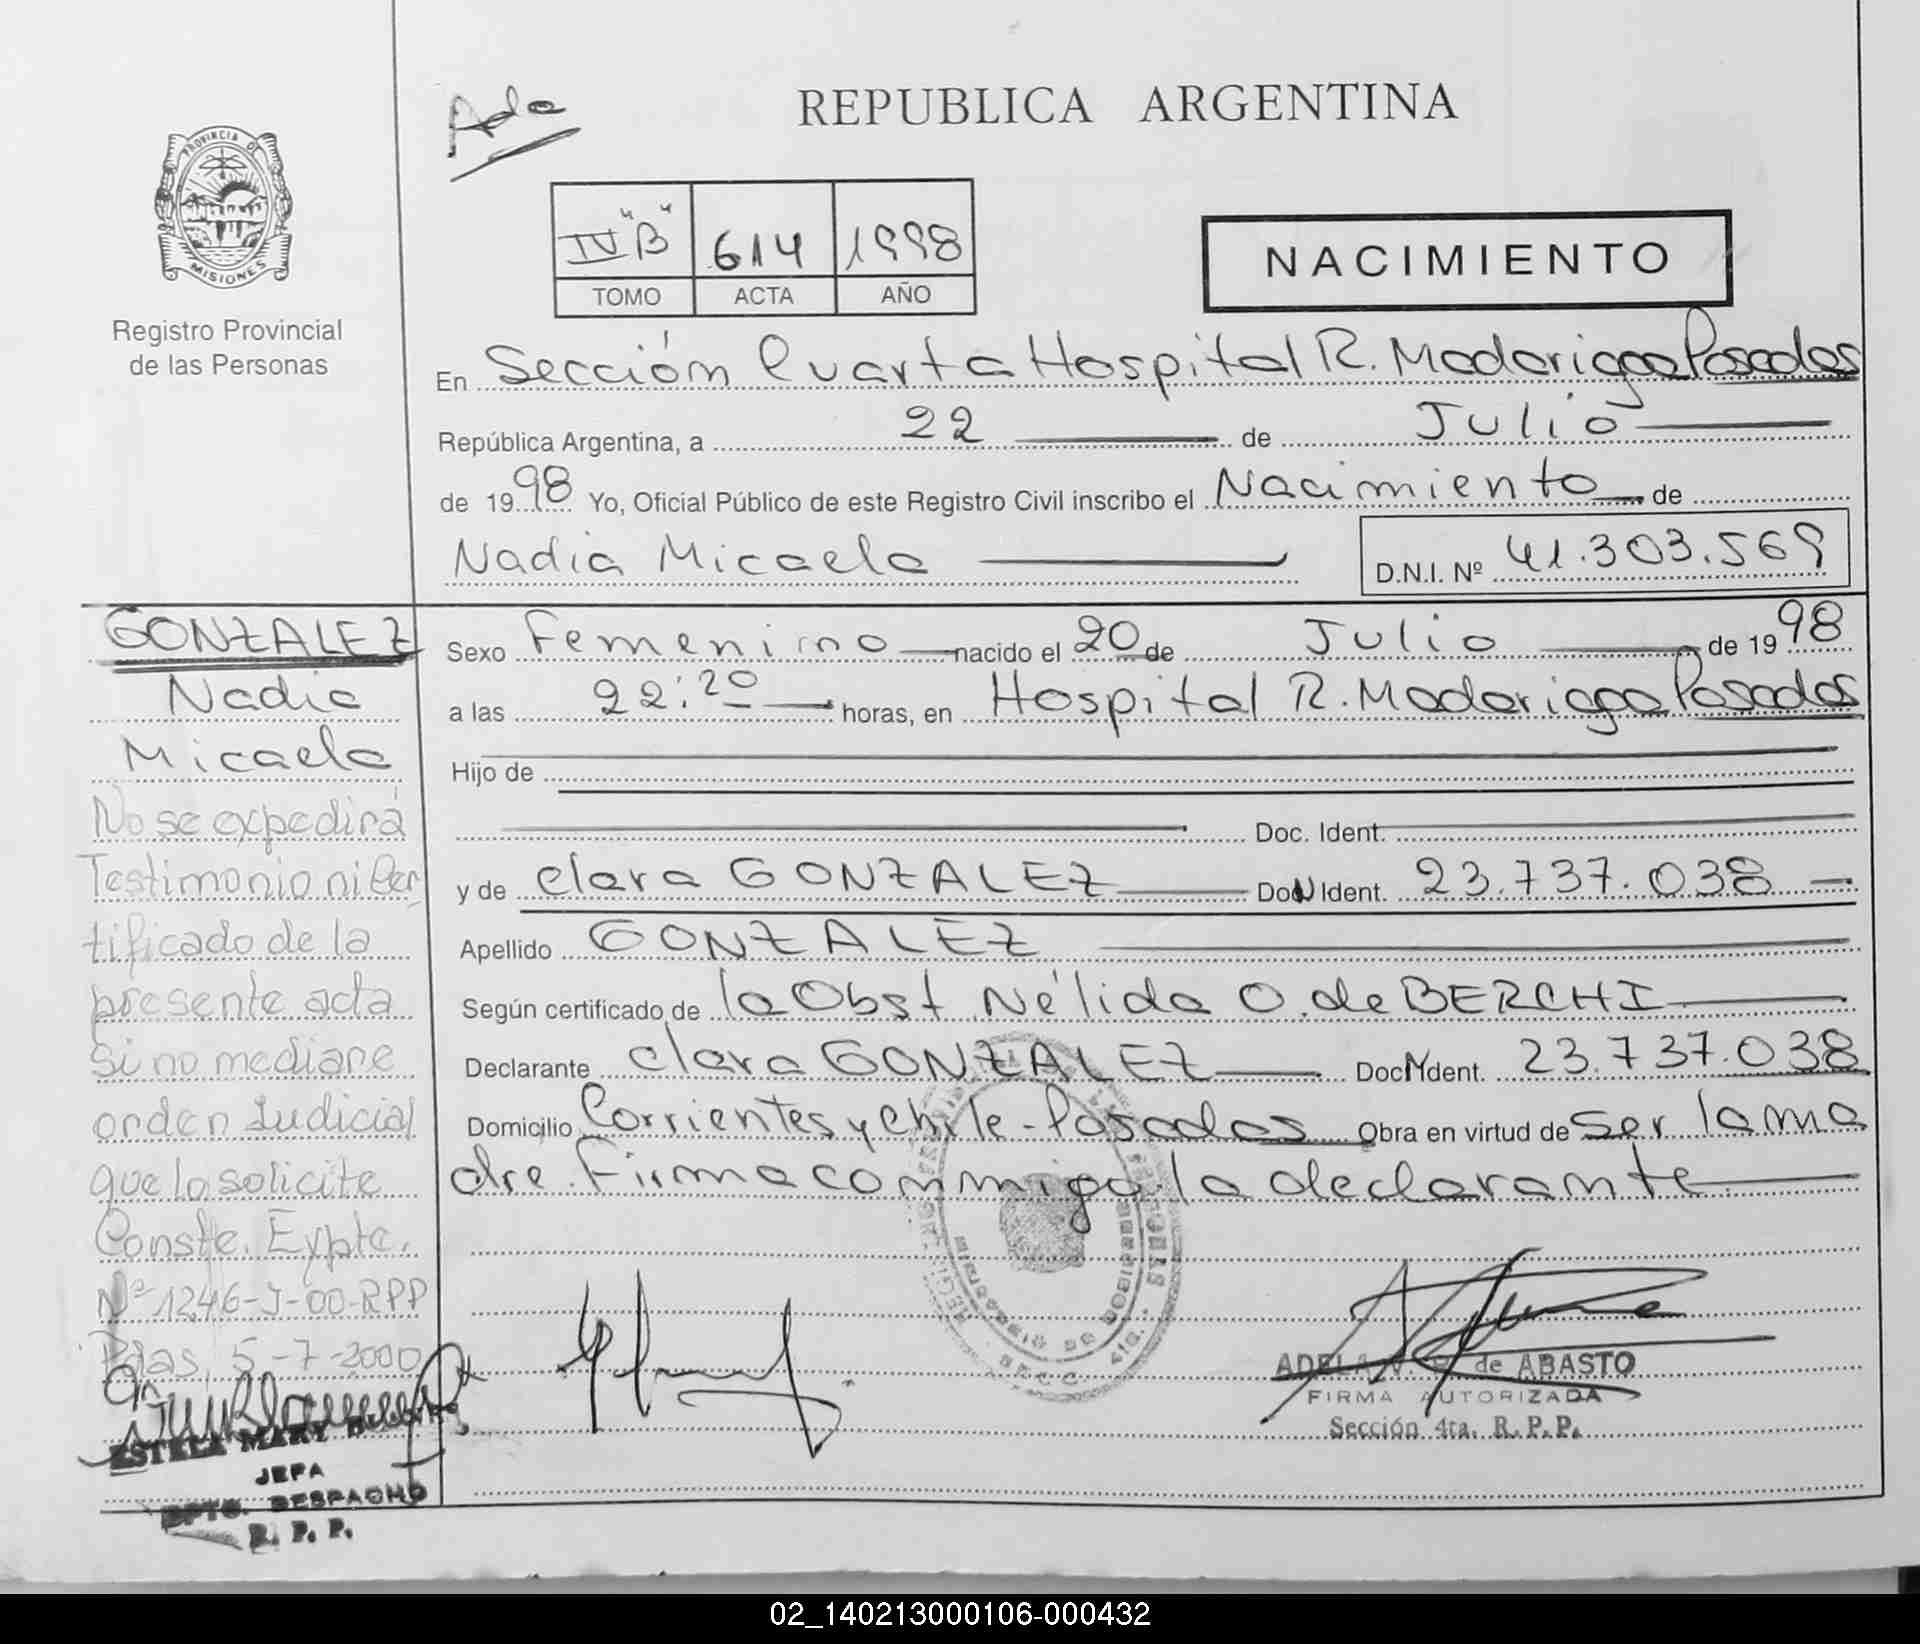 Ada
REPUBLICA ARGENTINA
PROVINCIA DE
MISIONES
Registro Provincial
de las Personas
IV "B" 614 1998
TOMO ACTA AÑO
NACIMIENTO
En Sección Cuarta Hospital R. Madariaga Posadas
República Argentina, a 22 de Julio
de 1998 Yo, Oficial Público de este Registro Civil inscribo el Nacimiento de
Nadia Micaela D.N.I. Nº 41.303.569
Sexo Femenino nacido el 20 de Julio de 1998
a las 22:20 horas, en Hospital R. Madariaga Posadas
Hijo de
Doc. Ident.
y de Clara GONZALEZ Doc Ident. 23.737.038
Apellido GONZALEZ
Según certificado de la Obst Nélida O. de BERCHI
Declarante Clara GONZALEZ Doc Ident. 23.737.038
Domicilio Corrientes y Chile - Posadas Obra en virtud de Ser la ma
dre. Firma conmigo la declarante
GONZALEZ
Nadia
Micaela
No se expedirá
Testimonio ni Cer
tificado de la
presente acta
si no mediare
orden Judicial
que lo solicite
Conste. Expte.
Nº 1246-J-00-RPP
Pdas, 5-7-2000
ESTELA MARY
JEFA
DPTO. DESPACHO
R. P. P.
ADELA de ABASTO
FIRMA AUTORIZADA
Sección 4ta. R. P. P.
02_140213000106-000432